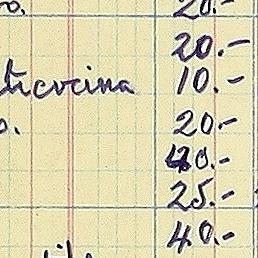 o. 20.-
20.-
ticucina 10.-
o. 20.-
40.-
25.-
40.-